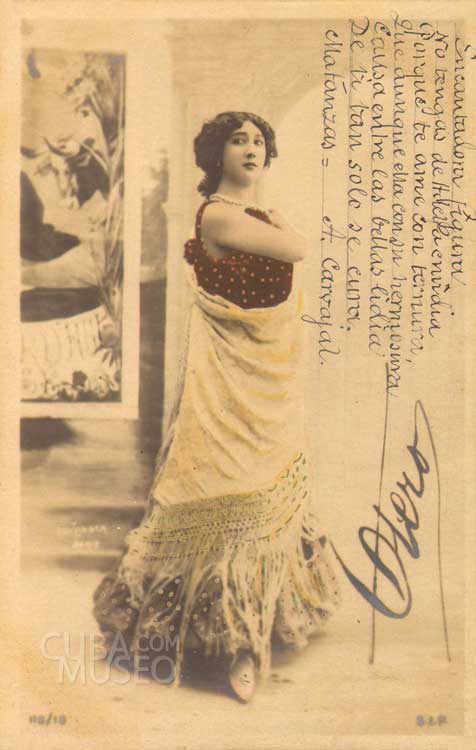 Encantadora figura
No tengas de envidia
Porque te ame con ternura,
Que aunque ella con su hermosura
Causa entre las bellas lidia
De ti tan solo se cura.
Matanzas = A. Carvajal.
Otero
CUBA.COM
MUSEO
118/18
S.I.P.